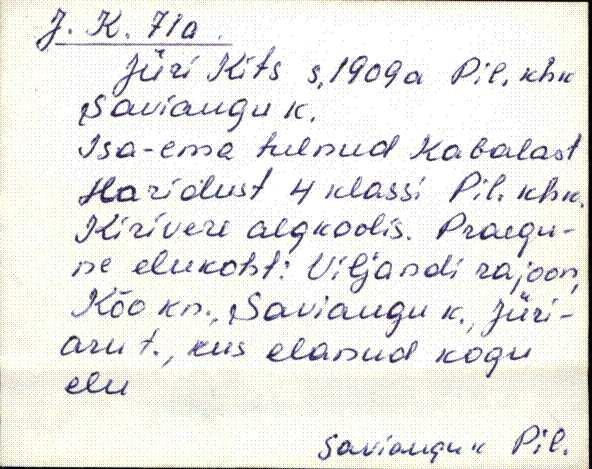 J. K. 71a.
Jüri Kits s. 1909a Pil. khk
Saviaugu k.
Isa-ema tulnud Kabalast
Haridust 4 klassi Pil. khk.
Kirivere algkoolis. Praegu-
ne elukoht: Viljandi rajoon,
Kõo kn., Saviaugu k., Jüri-
aru t., kus elanud kogu
elu
Saviaugu k Pil.